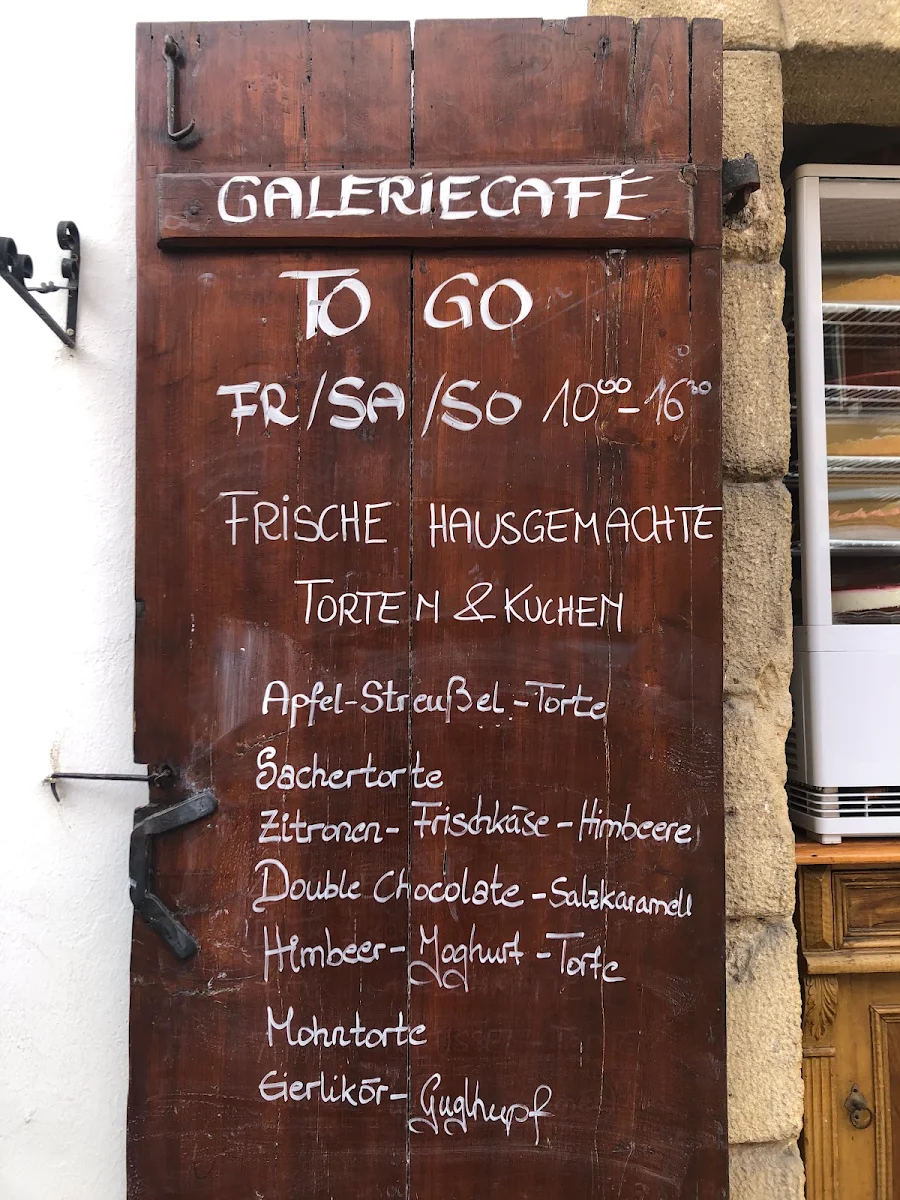 GALERIECAFÉ
TO GO
FR/SA/SO 10⁰⁰-16³⁰
FRISCHE HAUSGEMACHTE
TORTEN & KUCHEN
Apfel-Streußel-Torte
Sachertorte
Zitronen-Frischkäse-Himbeere
Double Chocolate-Salzkaramell
Himbeer-Yoghurt-Torte
Mohntorte
Eierlikör-Guglhupf